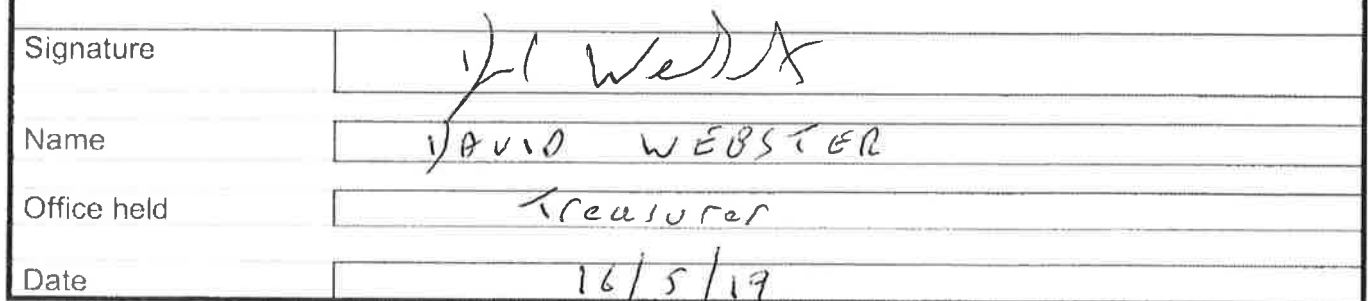 Signature
Name DAVID WEBSTER
Office held Treasurer
Date 16/5/19